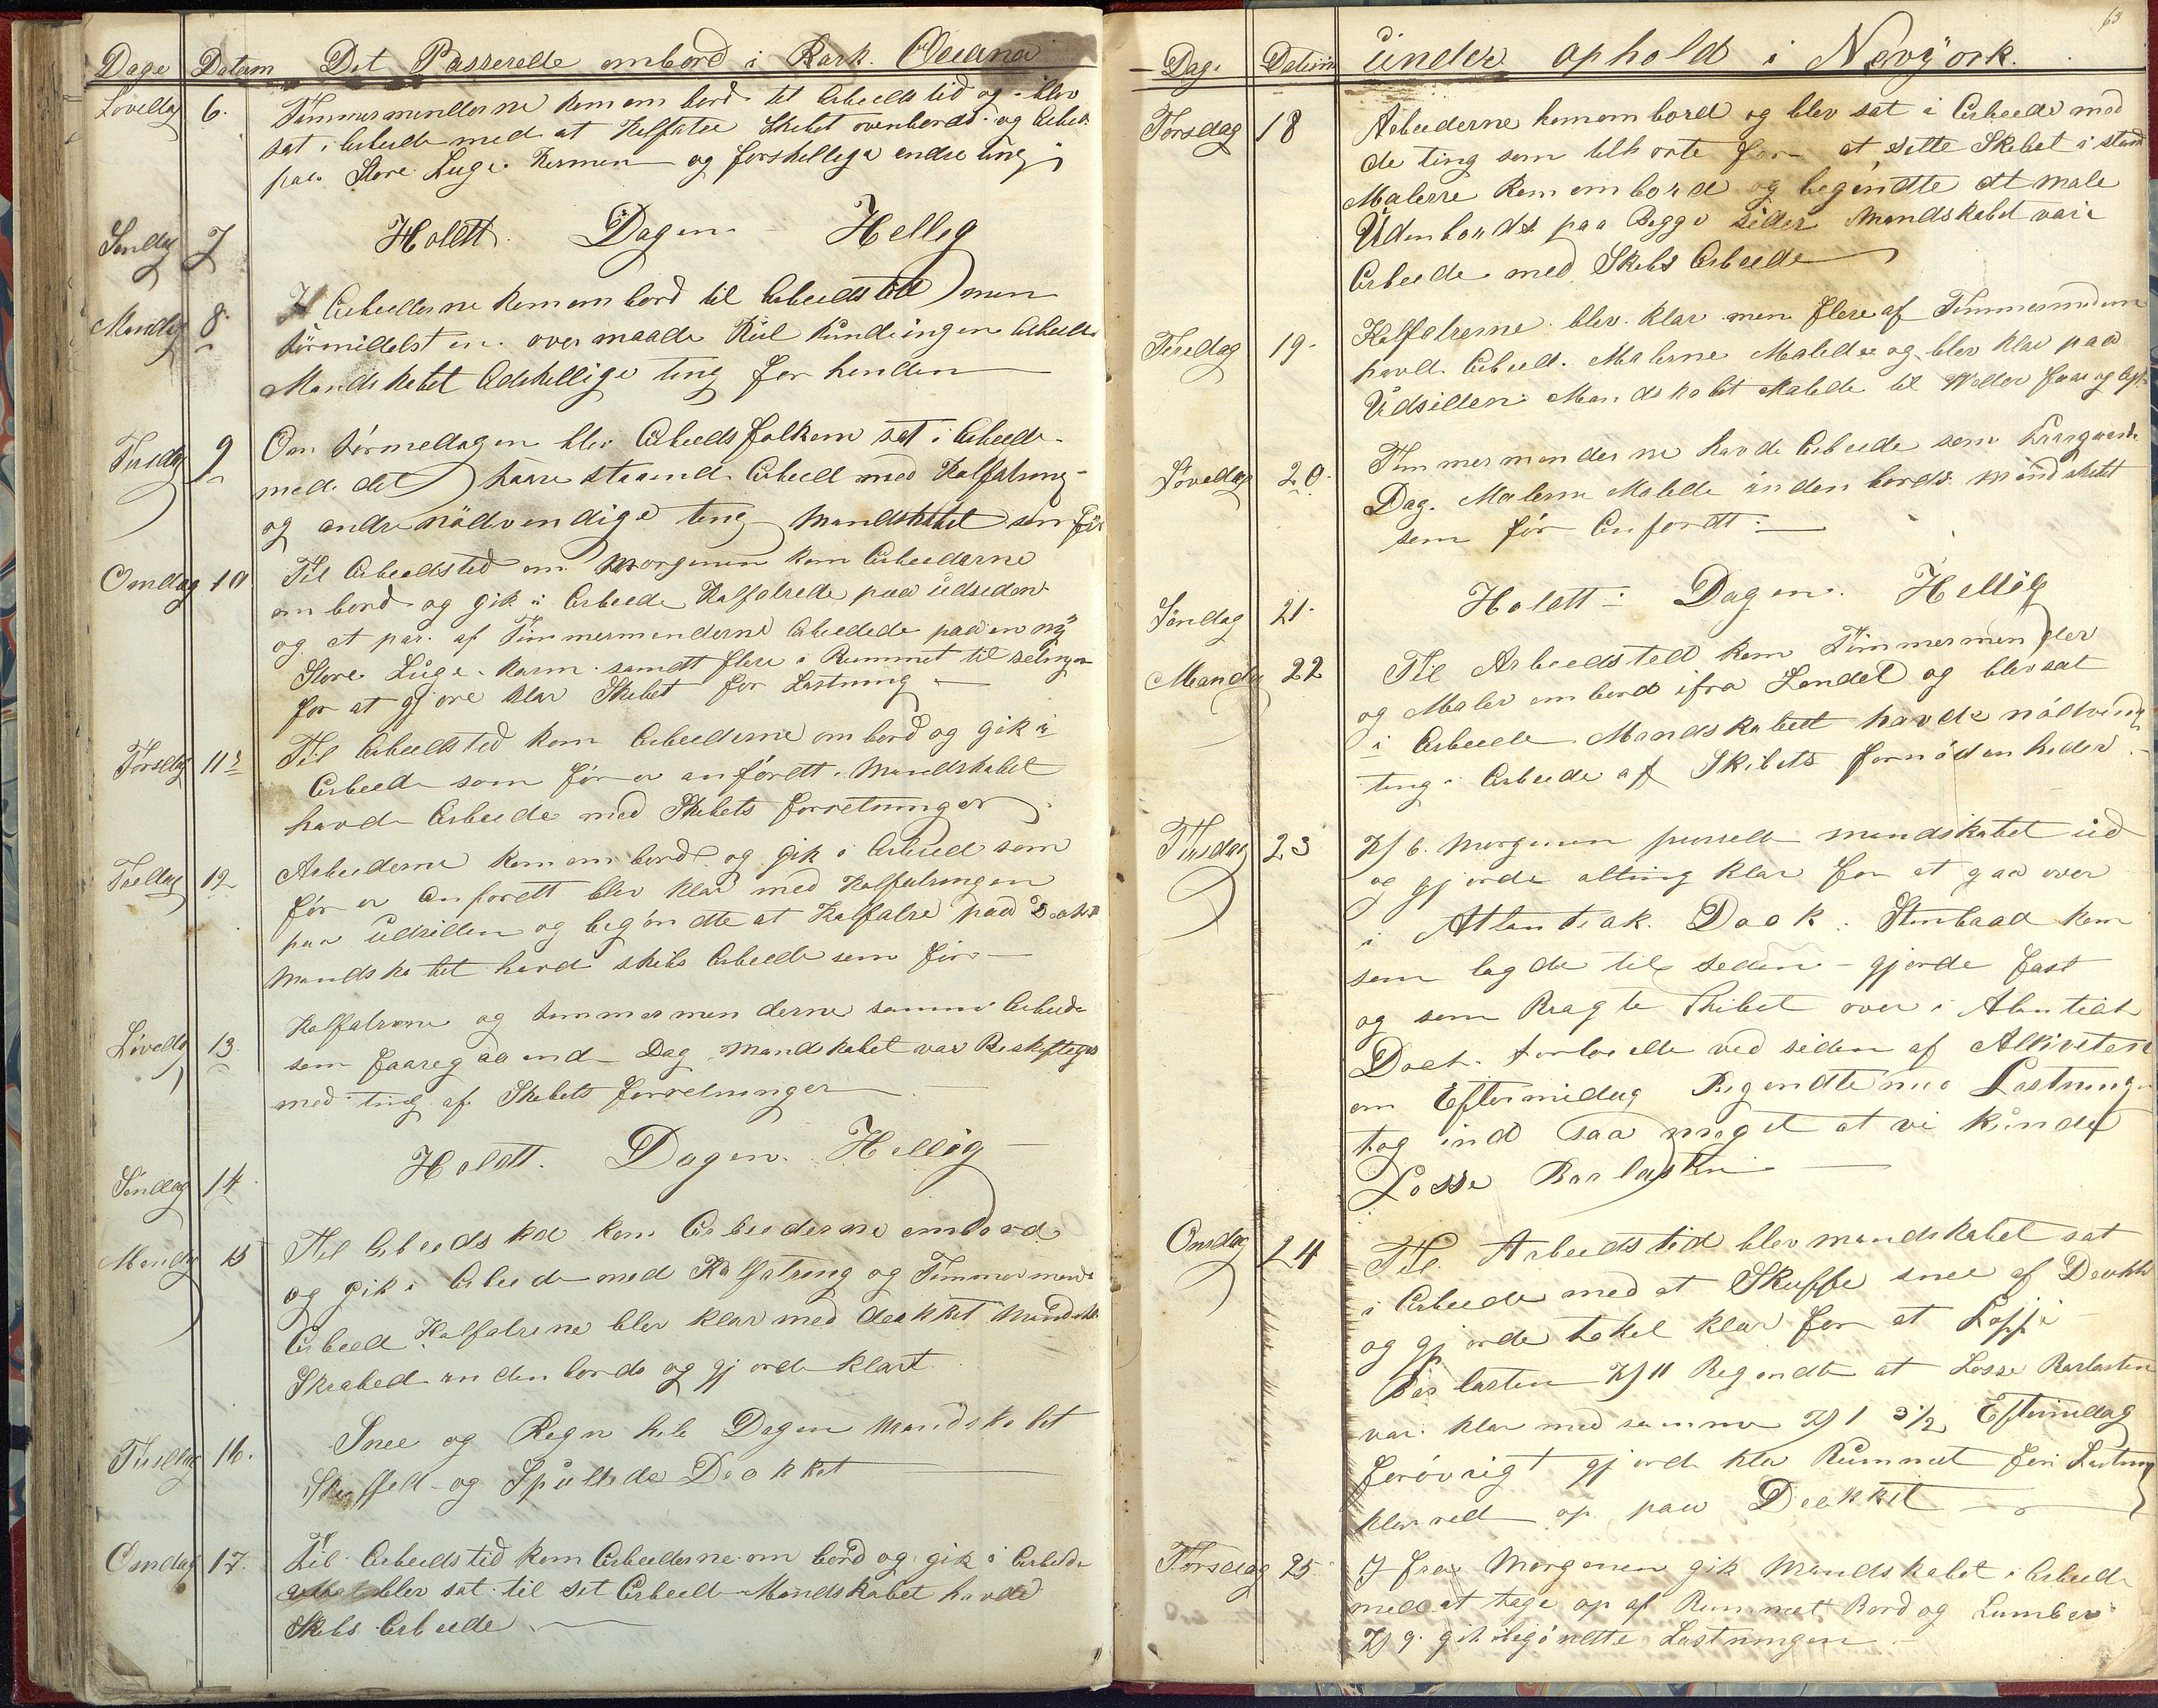 Dage Datum Det Passerede ombord i Bark. Oceana
Løverdag 6. Tømmermenderne kom om bord til Arbeidstid og blev
sat i Arbeide med at Kalfatre Skibet ovenbords og Arbeid
paa Store Luge Karmen og forskellige andre ting
Søndag 7 Holdt. Dagen Hellig
Mandag 8. Arbeiderne kom om bord til Arbeidstid men
formidelst en overmaade Kul kunde ingen Arbeide
Mandskabet Adskellige ting for henden
Tirsdag 9 Om Formedagen blev Arbeidsfolkene sat i Arbeide
med det haarstaaend Arbeid med Kalfatring
og andre nödvendige ting Mandskabet som før
Onsdag 10 Til Arbeidstid om Morgenen kom Arbeiderne
om bord og gik i Arbeide Kalfatrede paa udsiden
og et par af Tömmermenderne Arbeidede paa en ny
Store Luge Karm samdt flere i Rummet til
for at gjøre klar Skibet for Lastning
Torsdag 11 Til Arbeidstid kom Arbeiderne om bord og gik i
Arbeide som før er anførdt. Mandskabet
havde Arbeide med Skibets forretninger
Fredag 12 Arbeiderne kom om bord og gik i Arbeid som
før er Anførdt blev klar med Kalfatringen
paa udsiden og begöndte at Kalfatre paa Dæk
Mandskabet havde skibs Arbeide som før
Løverdag 13. Kalfatrerne og tømmermenderne samme Arbeide
som foregaaend Dag Mandskabet var Beskeftiget
med ting af Skibets forretninger
Søndag 14 Holdt. Dagen. Hellig
Mandag 15 Til Arbeidstid kom Arbeiderne ombord
og gik i Arbeide med Kalfatring og Tømmermends
Arbeid. Kalfatrerne blev klar med dækket Mandsk
Skrabed indenbords og gjorde klart
Tirsdag 16. Snee og Regn hele Dagen Mandskabet
Skuffede og Spulede Dækket
Onsdag 17. Til Arbeidstid kom Arbeiderne om bord og gik i Arbeide
blev sat til sit Arbeid Mandskabet havde
Skibs Arbeide
63
Dag. Datum under ophold i Nevyork.
Torsdag 18 Arbeiderne kom om bord og blev sat i Arbeide med
de ting som tilhørte for at sette Skibet i stand
Malerne kom om bord og begöndte at male
Udenbords paa Begge sider Mandskabet var i
Arbeide med Skibs Arbeide
Fredag 19. Kalfatrerne blev klar men flere af Tømmermenderne
havde Arbeid. Malerne Malede og blev klar paa
Udsiden Mandskabet Malede
Løverdag 20. Tømmermenderne havde Arbeide som
Dag. Malerne Malede inden bords Mandskabet
som før Anfordt
Søndag 21. Holdt Dagen. Hellig
Mandag 22 Til Arbeidstid kom Tømmermender
og Maler om bord ifra Landet og blev sat
i Arbeide Mandskabet havde nödvendig
ting i Arbeide af Skibets fornödenheder.
Tirsdag 23 Kl 6. Morgenen purrede mandskabet ud
og gjorde alting klar for at gaa over
i Atlantiak Dock. Stimbaad kom
som lagde til seden gjorde fast
og som Bragte Skibet over i Atlantiak
Dock. fortøiede ved siden af
om Eftermidag Begöndte med Lastning
tog ind saa meget at vi kunde
Losse Barlasten
Onsdag 24 Til. Arbeidstid blev mandskabet sat
i Arbeide med at Skuffe snee af Dækket
og gjorde takel klar for at Losse
Barlasten Kl 11 Begöndte at Losse Barlasten
var klar med samme Kl 3½ Eftermidag
forövrigt gjorde klar Rummet for Lastning
klarede op paa Dækket
Torsdag 25 Ifra Morgenen gik Mandskabet i Arbeide
med at tage op af Rummet Bord og Lumber
Kl 9. begöndte Lastningen